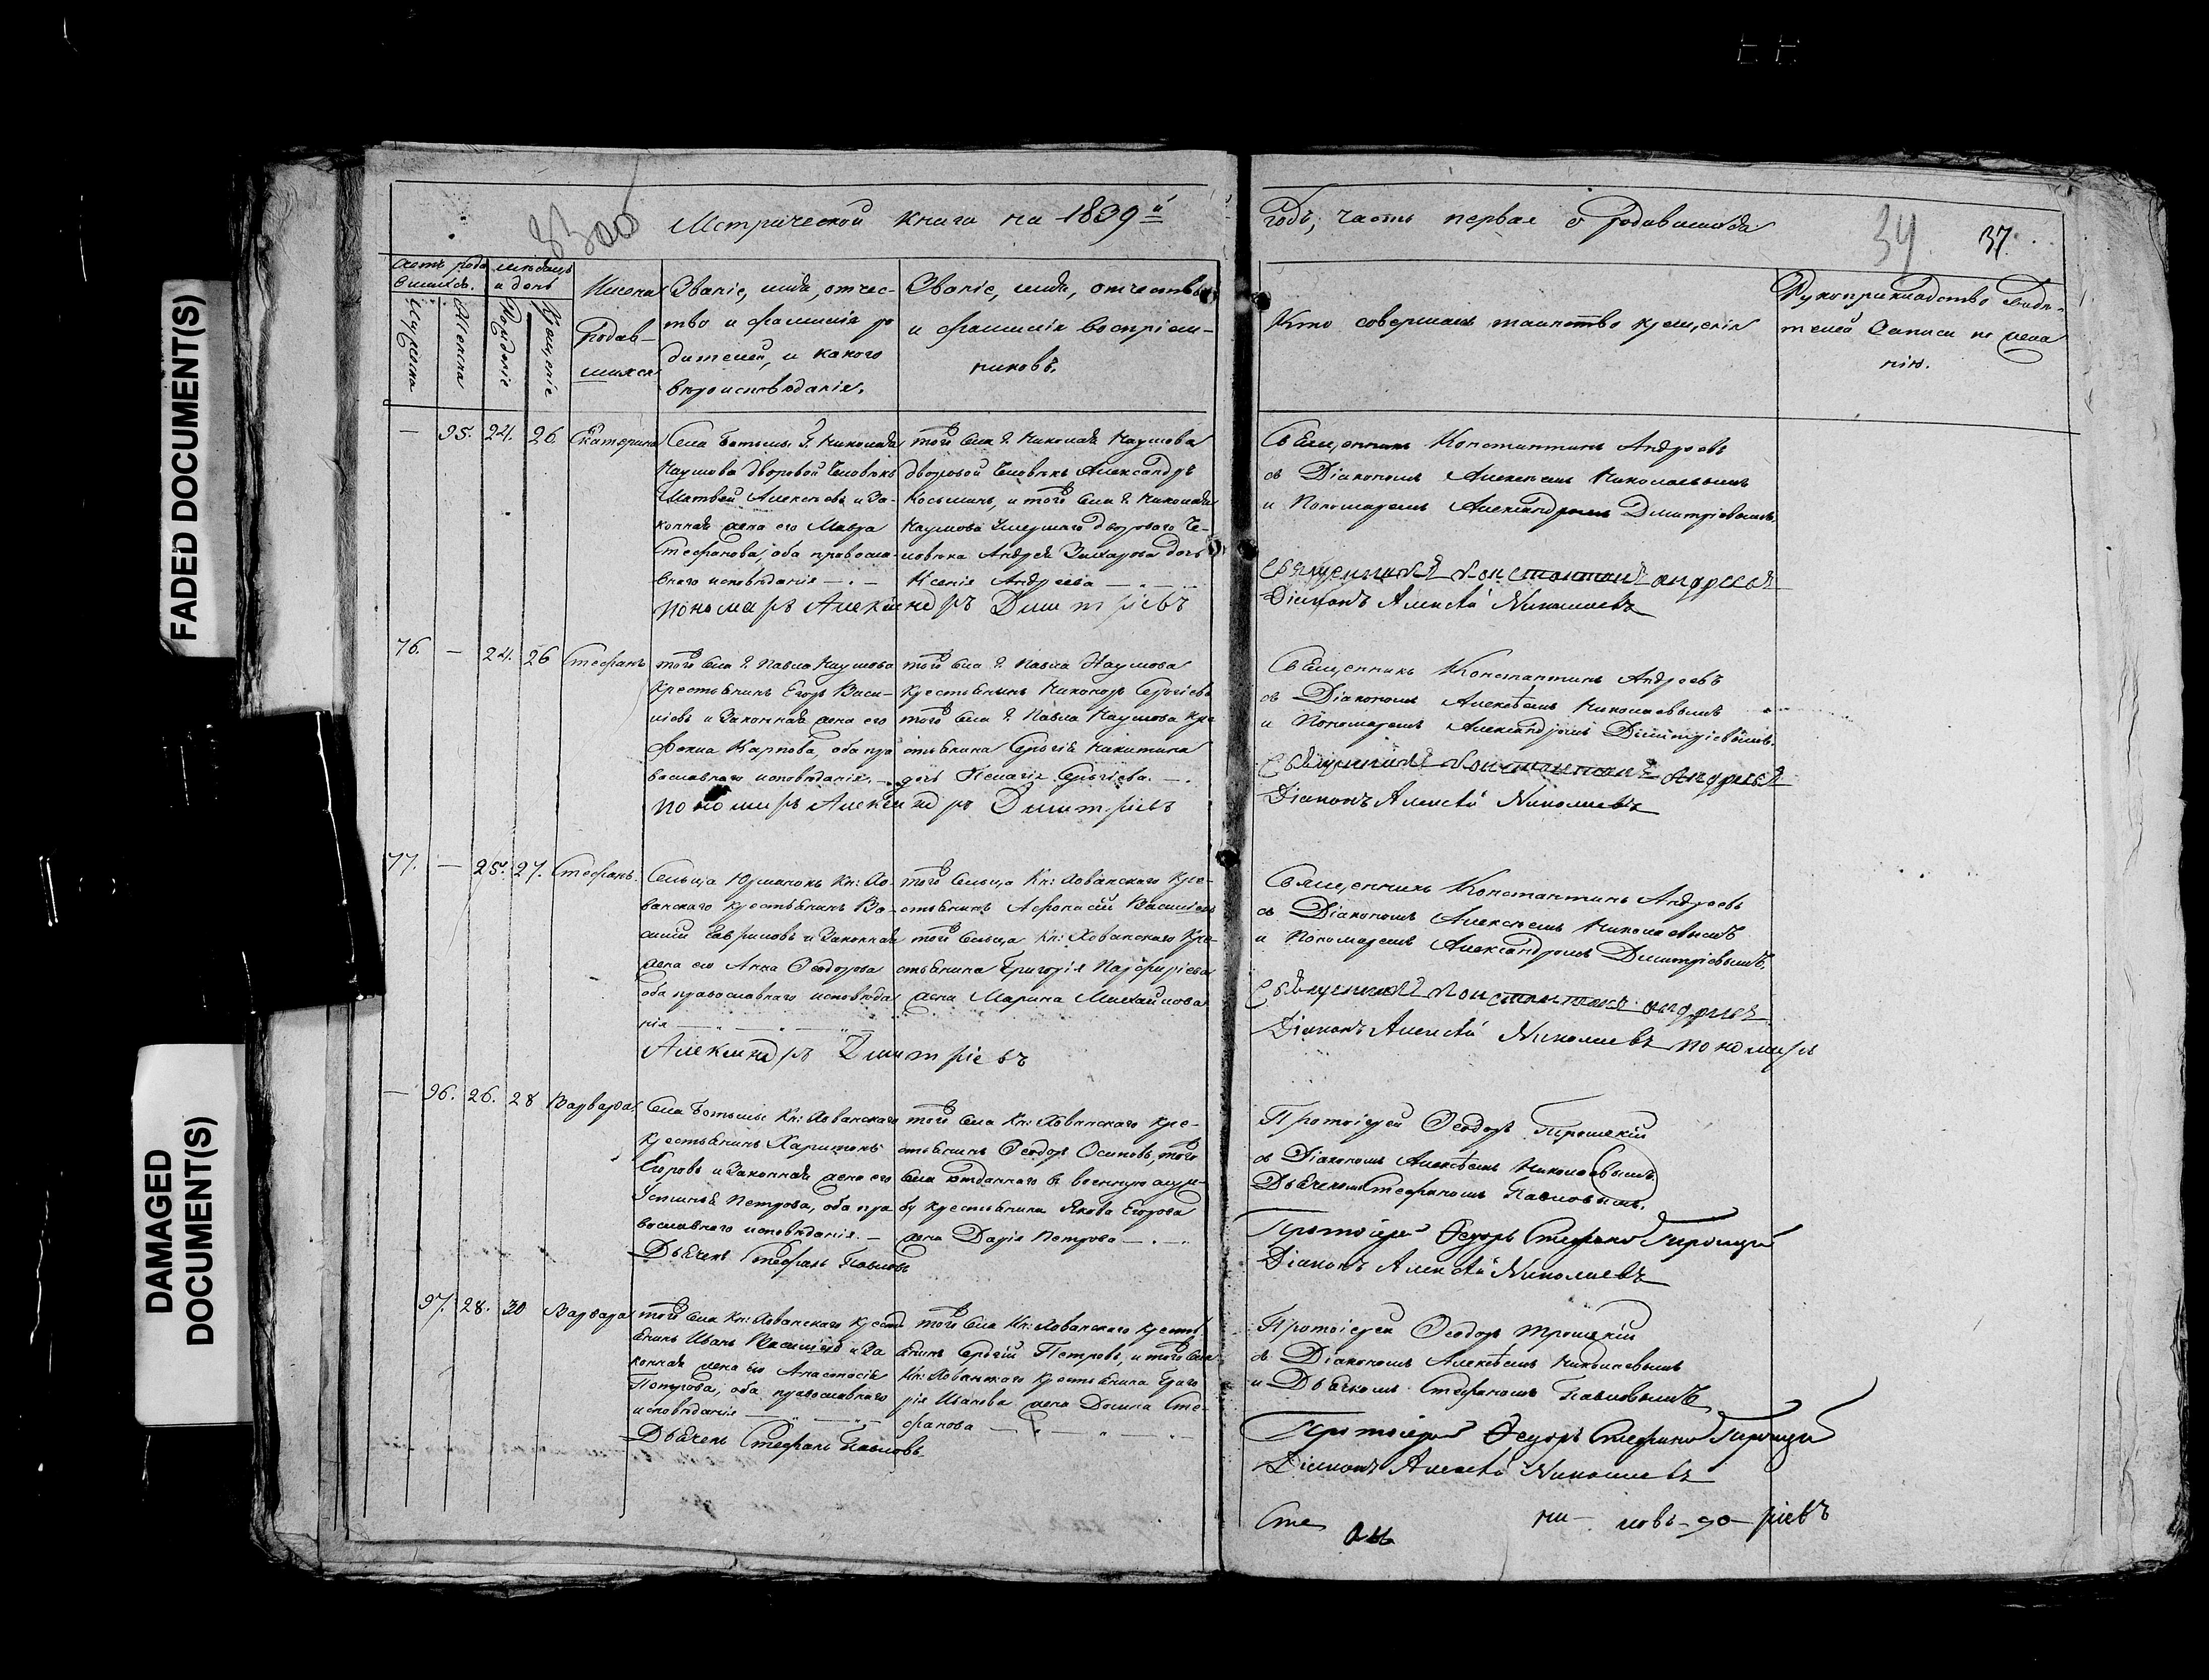 FADED DOCUMENT(S)
DAMAGED
DOCUMENT(S)
Метрической книга на 1839й
годъ, часть первая о родившихся
34 37.
Счетъ роди
вшихся.
мѣсяцъ
и день
Мужеска
Женска
Рожденіе
Крещеніе
Имена
Родив-
шихся
Званіе, имя, отчес-
тво и фамилія ро
дителей, и какого
вѣроисповѣданія.
Званіе, имя, отчество
и фамилія воспріем-
никовъ.
Кто совершалъ таинство крещенія
Рукоприкладство свидѣ-
телей записи по жела
нію.
— 95. 24. 26 Екатерина
Села Ботьмы Г. Николая
Наумова дворовой человѣкъ
Матвей Алексѣевъ и за-
конная жена его Мавра
Стефанова, оба православ-
наго исповѣданія —
того села Г. Николая Наумова
дворовой человѣкъ Александръ
Косьминъ, и того села Г. Николая
Наумова умершаго двороваго че-
ловѣка Андрея Захарова дочь
Ксенія Андреева —
Пономарь Александръ Димитріевъ
Священникъ Константинъ Андреевъ
съ Діакономъ Алексѣемъ Николаевымъ
и Пономаремъ Александромъ Димитріевымъ.
Священникъ Константинъ Андреевъ
Діаконъ Алексѣй Николаевъ
76. — 24. 26 Стефанъ
того села Г. Павла Наумова
крестьянинъ Егоръ Васи-
ліевъ и законная жена его
Фекла Карпова, оба пра
вославнаго исповѣданія. —
того села Г. Павла Наумова
крестьянинъ Никоноръ Сергіевъ
того села Г. Павла Наумова кре
стьянина Сергія Никитина
дочь Пелагія Сергіева. —
Пономарь Александръ Димитріевъ
Священникъ Константинъ Андреевъ
съ Діакономъ Алексѣемъ Николаевымъ
и Пономаремъ Александромъ Димитріевымъ.
Священникъ Константинъ Андреевъ
Діаконъ Алексѣй Николаевъ
77. — 25. 27. Стефанъ.
Сельца Юрманокъ Кн: Хо-
ванскаго крестьянинъ Ва-
силій Гавриловъ и законная
жена его Анна Ѳеодорова
оба православнаго исповѣда
нія —
того сельца Кн: Хованскаго кре-
стьянинъ Афонасій Василіевъ
того сельца Кн: Хованскаго кре-
стьянина Григорія Парфиріева
жена Марина Михайлова
Александръ Димитріевъ
Священникъ Константинъ Андреевъ
съ Діакономъ Алексѣемъ Николаевымъ
и Пономаремъ Александромъ Димитріевымъ.
Священникъ Константинъ Андреевъ
Діаконъ Алексѣй Николаевъ Пономарь
— 96. 26. 28 Варвара
Села Ботьмы Кн: Хованскаго
крестьянинъ Харитонъ
Егоровъ и законная жена его
Устинья Петрова, оба пра
вославнаго исповѣданія. —
того села Кн: Хованскаго кре-
стьянинъ Ѳеодоръ Осиповъ, того
села отданнаго въ военную служ-
бу крестьянина Якова Егорова
жена Дарія Петрова —
Дьячекъ Стефанъ Павловъ
Протоіерей Ѳеодоръ Троицкій
съ Діакономъ Алексѣемъ Николаевымъ
Дьячкомъ Стефаномъ Павловымъ.
Протоіерей Ѳедоръ Троицкій
Діаконъ Алексѣй Николаевъ
97. 28. 30 Варвара
того села Кн: Хованскаго кресть
янинъ Иванъ Василіевъ и за
конная жена его Анастасія
Петрова, оба православнаго
исповѣданія —
того села Кн: Хованскаго кресть
янинъ Сергій Петровъ, и того села
Кн: Хованскаго крестьянина Григо
рія Иванова жена Домна Сте-
фанова —
Дьячекъ Стефанъ Павловъ.
Протоіерей Ѳеодоръ Троицкій
съ Діакономъ Алексѣемъ Николаевымъ
и Дьячкомъ Стефаномъ Павловымъ
Протоіерей Ѳедоръ Троицкій
Діаконъ Алексѣй Николаевъ